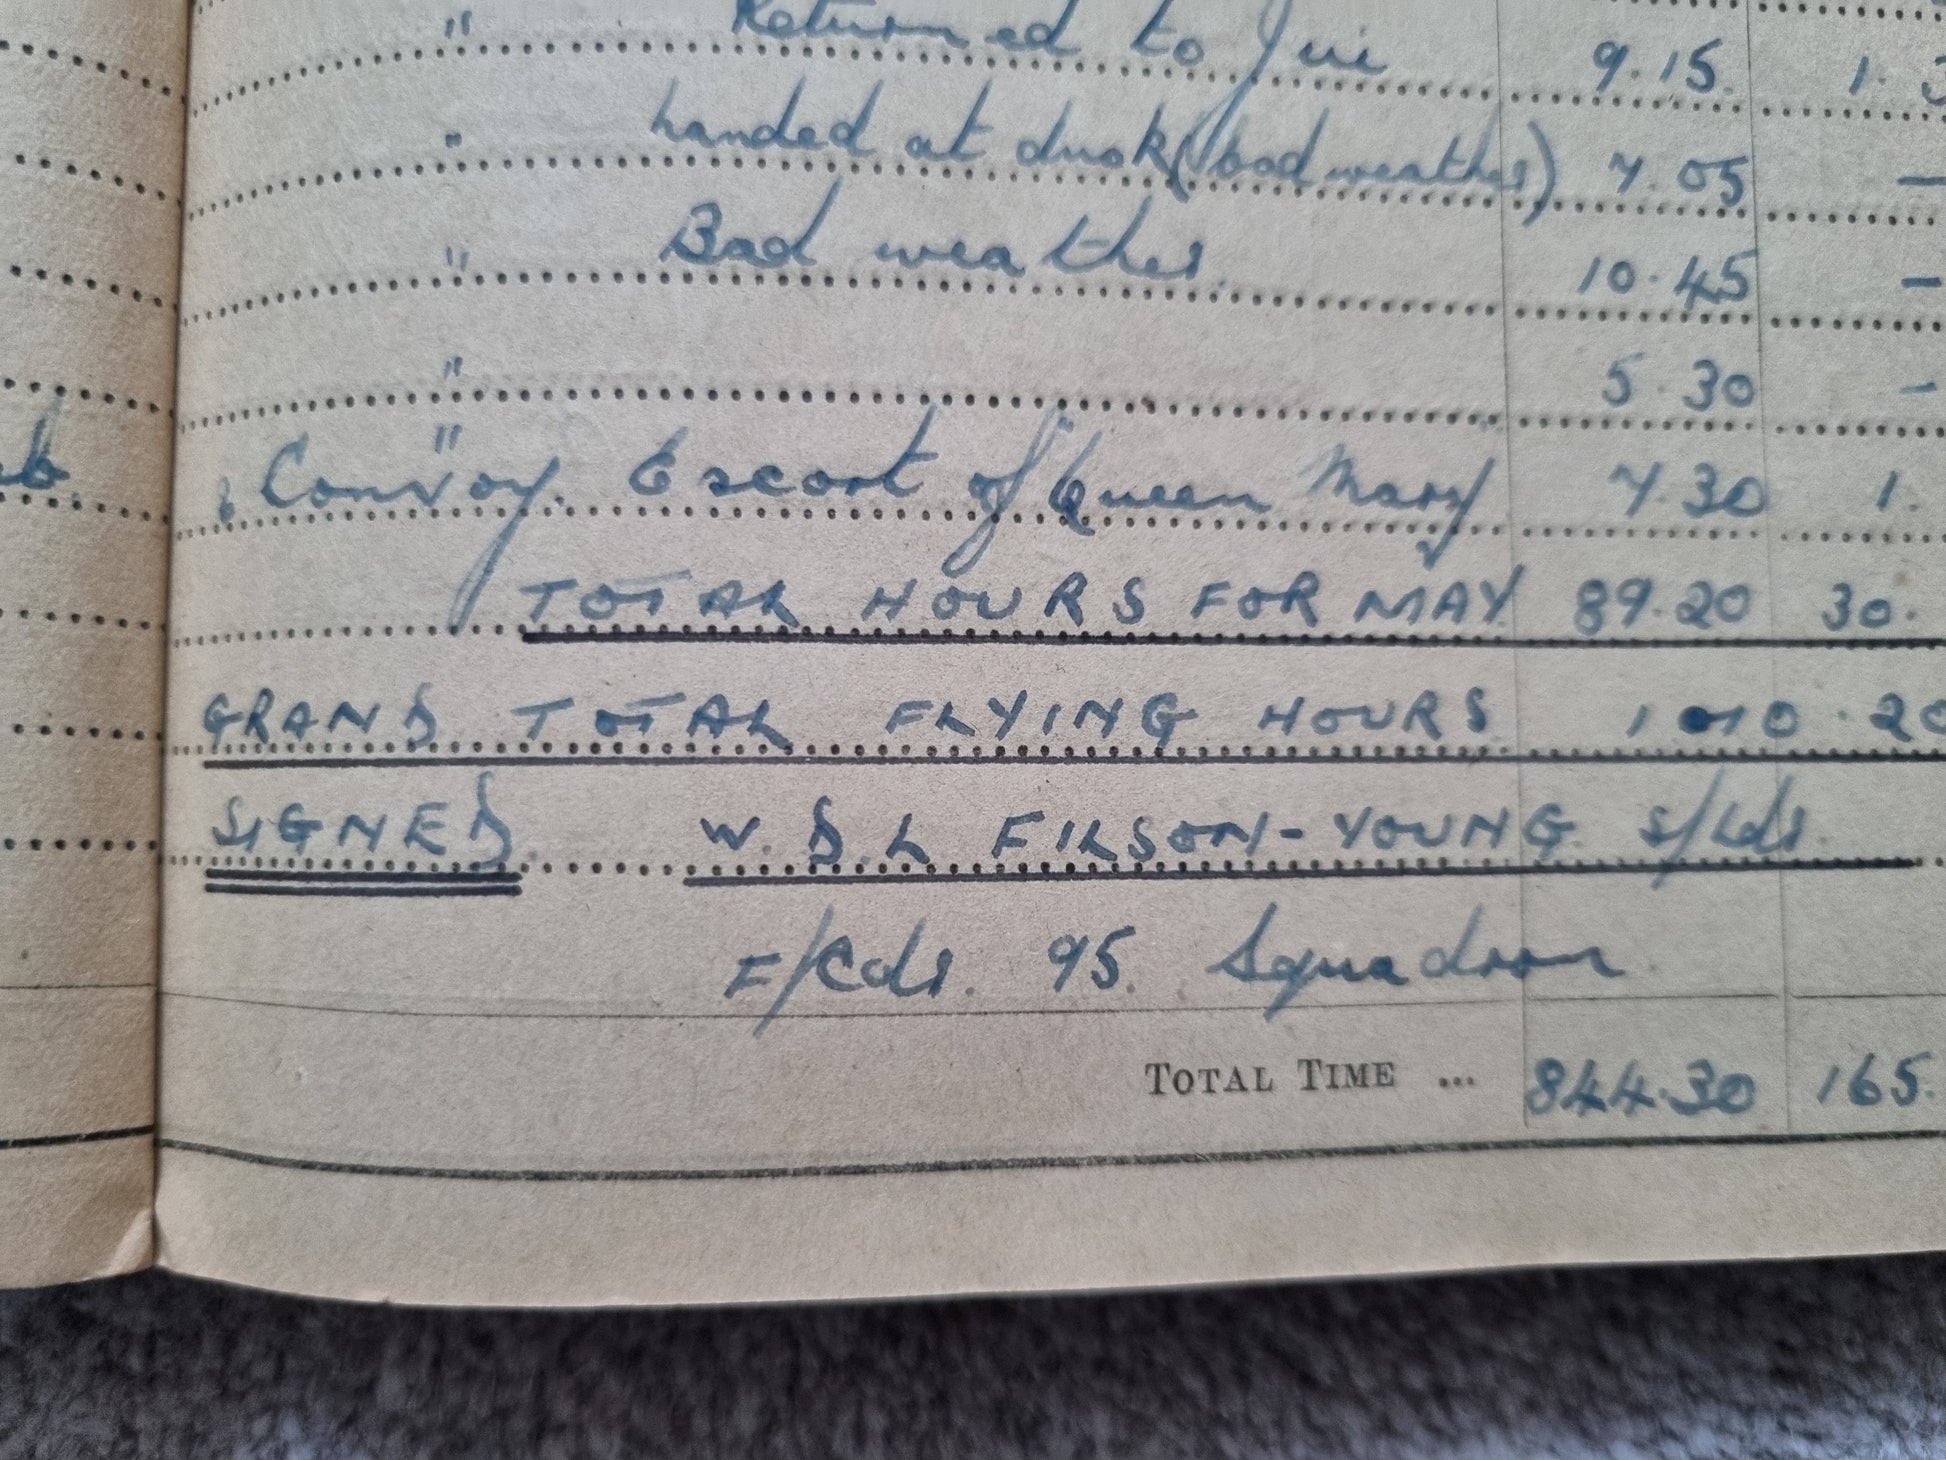 " Returned to Jui 9.15. 1.3
" Landed at dusk (bad weather) 7.05 —
" Bad weather. 10.45 –
" 5.30 –
" Convoy. Escort of "Queen Mary" 7.30 1.
TOTAL HOURS FOR MAY. 89.20 30.
GRAND TOTAL FLYING HOURS 1010.20
SIGNED. W. D. L FILSON-YOUNG. S/Ldr.
F/Cdr. 95. Squadron.
TOTAL TIME ... 844.30 165.